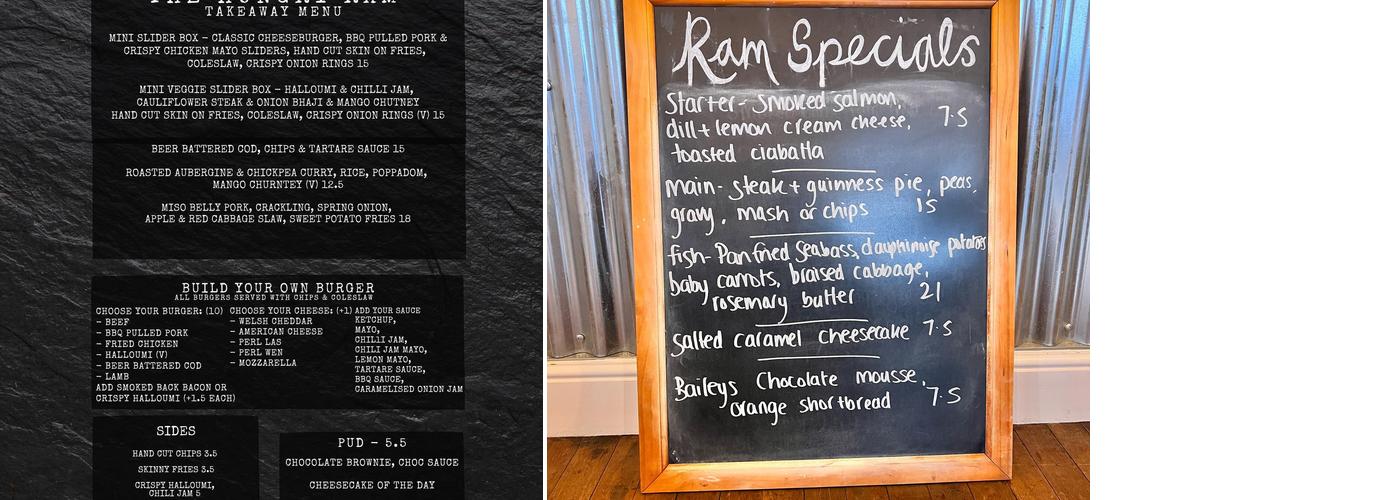 THE HUNGRY RAM
TAKEAWAY MENU
MINI SLIDER BOX - CLASSIC CHEESEBURGER, BBQ PULLED PORK &
CRISPY CHICKEN MAYO SLIDERS, HAND CUT SKIN ON FRIES,
COLESLAW, CRISPY ONION RINGS 15
MINI VEGGIE SLIDER BOX - HALLOUMI & CHILLI JAM,
CAULIFLOWER STEAK & ONION BHAJI & MANGO CHUTNEY
HAND CUT SKIN ON FRIES, COLESLAW, CRISPY ONION RINGS (V) 15
BEER BATTERED COD, CHIPS & TARTARE SAUCE 15
ROASTED AUBERGINE & CHICKPEA CURRY, RICE, POPPADOM,
MANGO CHURNTEY (V) 12.5
MISO BELLY PORK, CRACKLING, SPRING ONION,
APPLE & RED CABBAGE SLAW, SWEET POTATO FRIES 18
BUILD YOUR OWN BURGER
ALL BURGERS SERVED WITH CHIPS & COLESLAW
CHOOSE YOUR BURGER: (10)
- BEEF
- BBQ PULLED PORK
- FRIED CHICKEN
- HALLOUMI (V)
- BEER BATTERED COD
- LAMB
ADD SMOKED BACK BACON OR
CRISPY HALLOUMI (+1.5 EACH)
CHOOSE YOUR CHEESE: (+1)
- WELSH CHEDDAR
- AMERICAN CHEESE
- PERL LAS
- PERL WEN
- MOZZARELLA
ADD YOUR SAUCE
KETCHUP,
MAYO,
CHILLI JAM,
CHILI JAM MAYO,
LEMON MAYO,
TARTARE SAUCE,
BBQ SAUCE,
CARAMELISED ONION JAM
SIDES
HAND CUT CHIPS 3.5
SKINNY FRIES 3.5
CRISPY HALLOUMI,
CHILI JAM 5
PUD - 5.5
CHOCOLATE BROWNIE, CHOC SAUCE
CHEESECAKE OF THE DAY
Ram Specials
Starter- smoked salmon,
dill + lemon cream cheese, 7.5
toasted ciabatta
main- steak + guinness pie, peas,
gravy, mash or chips 15
fish- Pan fried seabass, dauphinoise potatoes
baby carrots, braised cabbage,
rosemary butter 21
Salted caramel cheesecake 7.5
Baileys Chocolate mousse,
orange shortbread 7.5